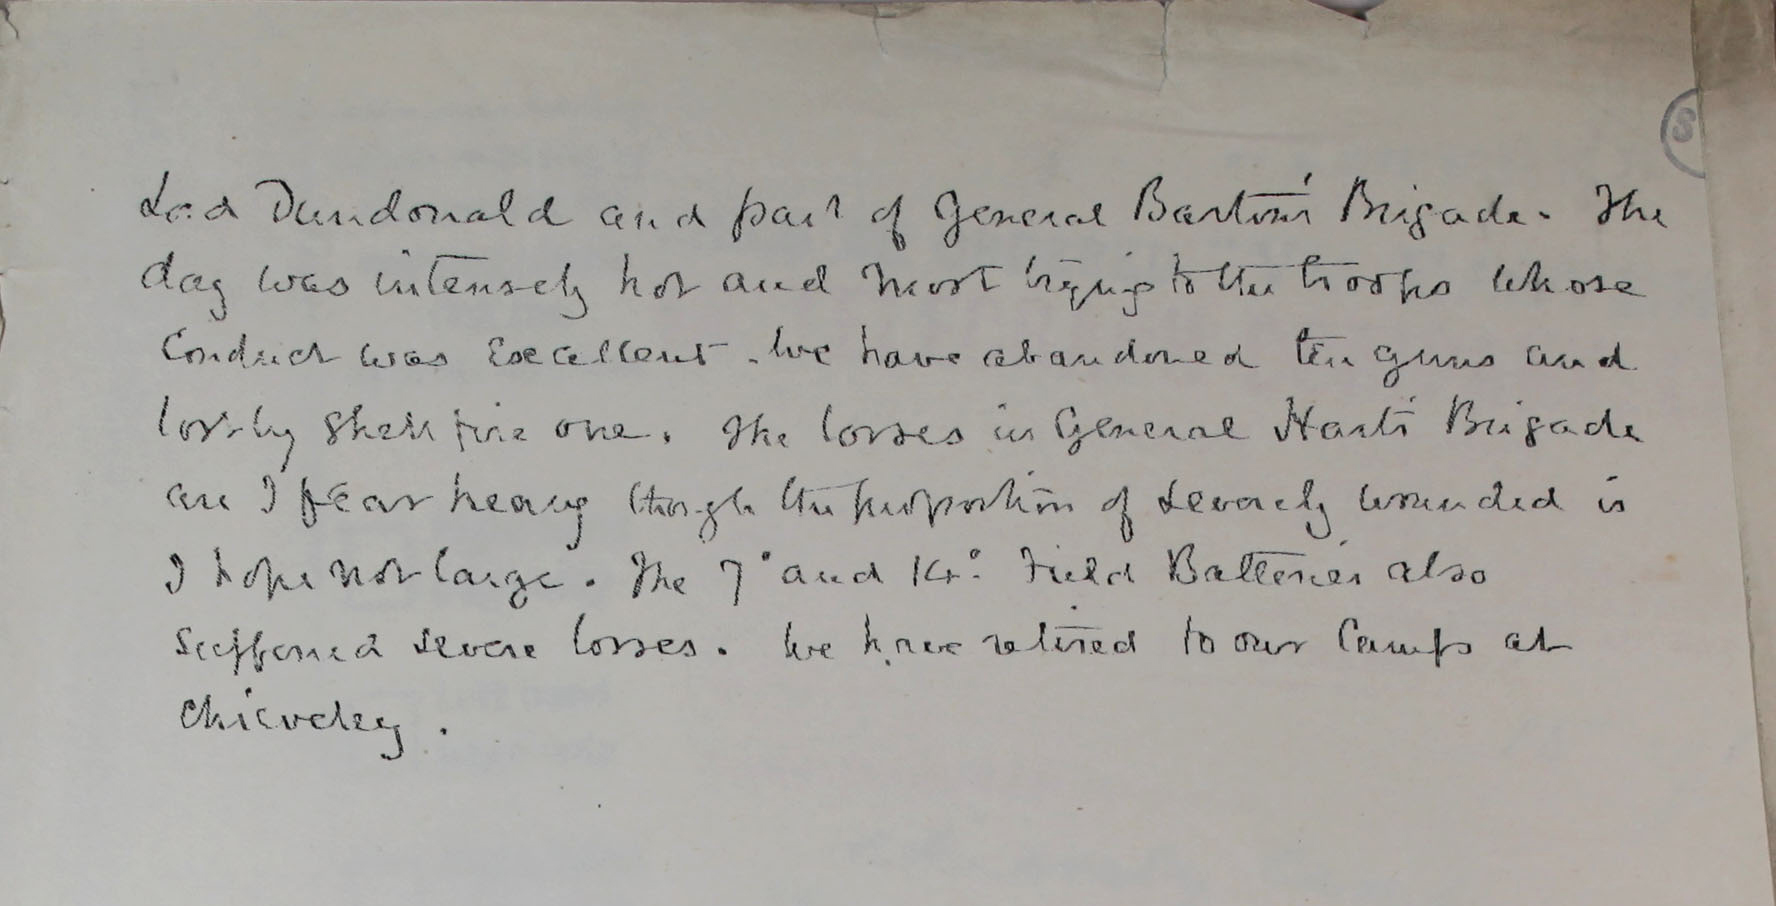 Lord Dundonald and part of General Barton's Brigade. The
day was intensely hot and most trying to the troops whose
conduct was excellent. We have abandoned ten guns and
lost by shell fire one. The losses in General Hart's Brigade
are I fear heavy though the proportion of severely wounded is
I hope not large. The 7° and 14° Field Batteries also
suffered severe losses. We have retired to our Camps at
Chieveley.
S